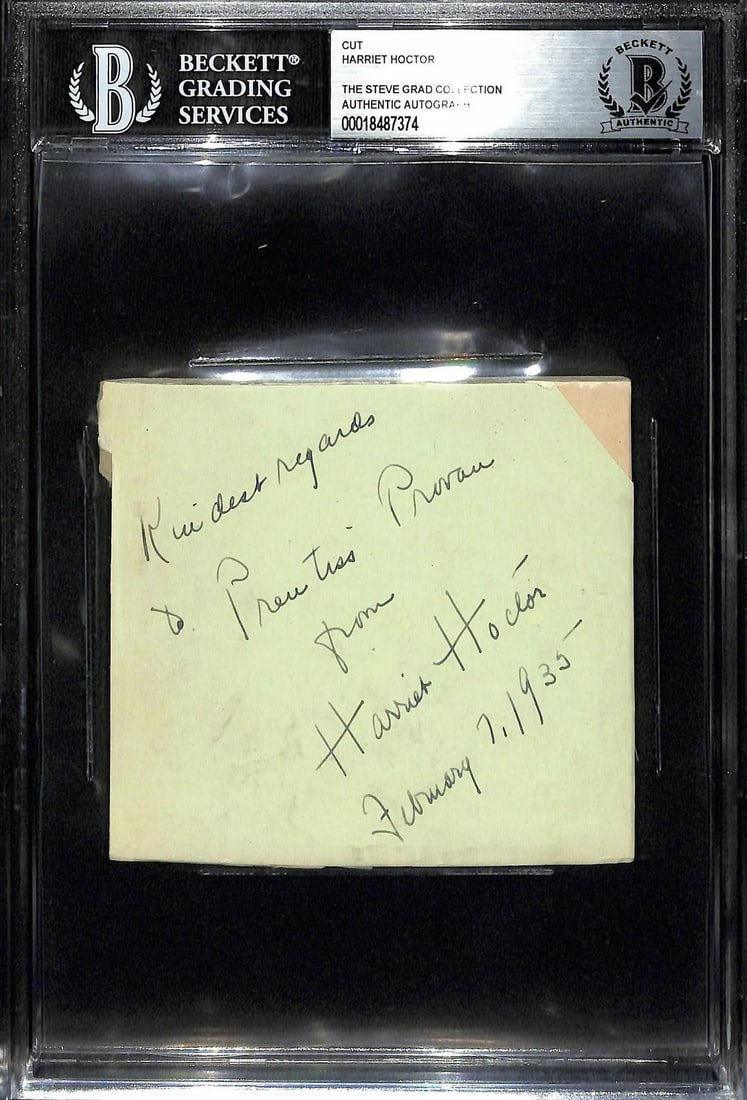 BECKETT®
GRADING
SERVICES
CUT
HARRIET HOCTOR
THE STEVE GRAD COLLECTION
AUTHENTIC AUTOGRAPH
00018487374
BECKETT
B
AUTHENTIC
B
Kindest regards
to Prentiss Provan
from
Harriet Hoctor
February 7, 1935